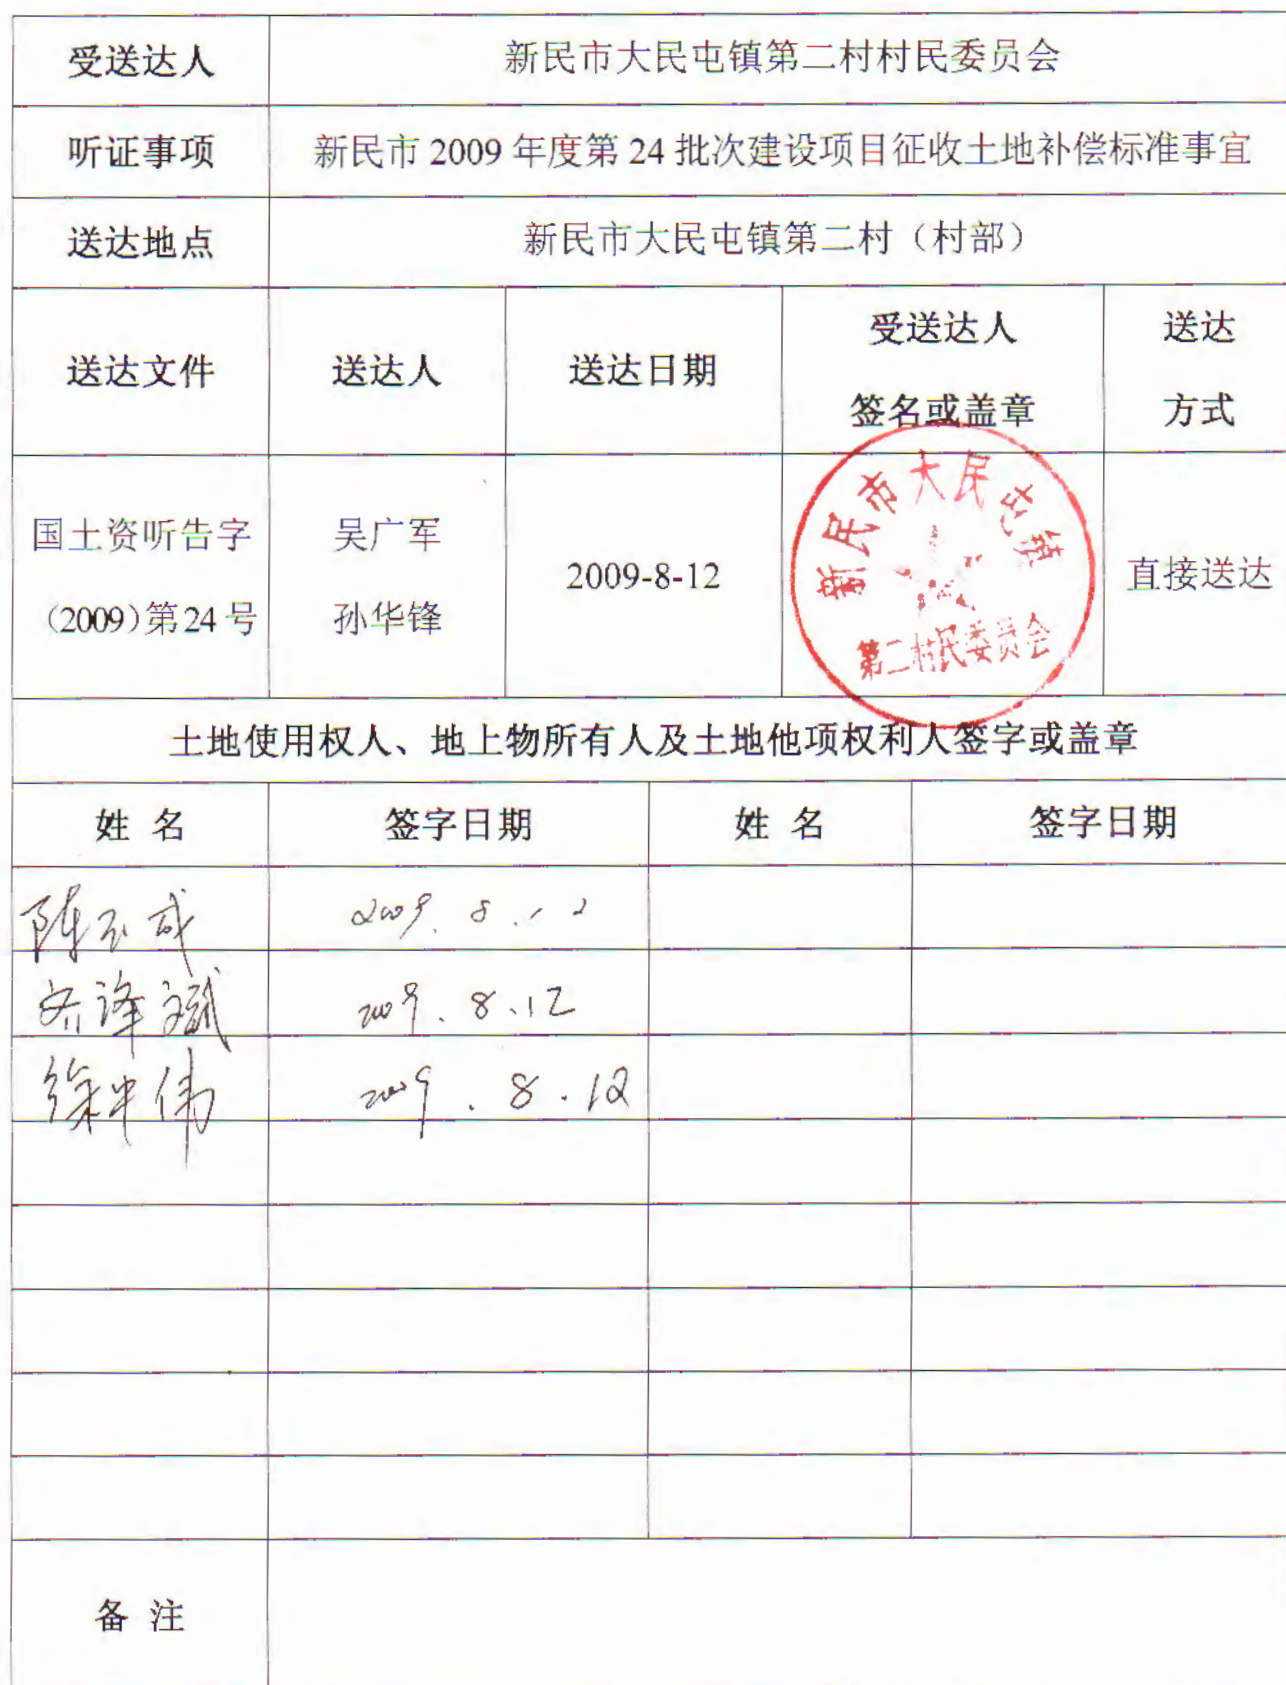 受送达人 新民市大民屯镇第二村村民委员会
听证事项 新民市 2009 年度第 24 批次建设项目征收土地补偿标准事宜
送达地点 新民市大民屯镇第二村（村部）
送达文件 送达人 送达日期 受送达人 签名或盖章 送达 方式
国土资听告字 吴广军
(2009)第24号 孙华锋
2009-8-12
新民市大民屯镇
第二村民委员会
直接送达
土地使用权人、地上物所有人及土地他项权利人签字或盖章
姓 名 签字日期 姓 名 签字日期
陈玉成 2009.8.12
2009.8.12
徐中伟 2009.8.12
备 注